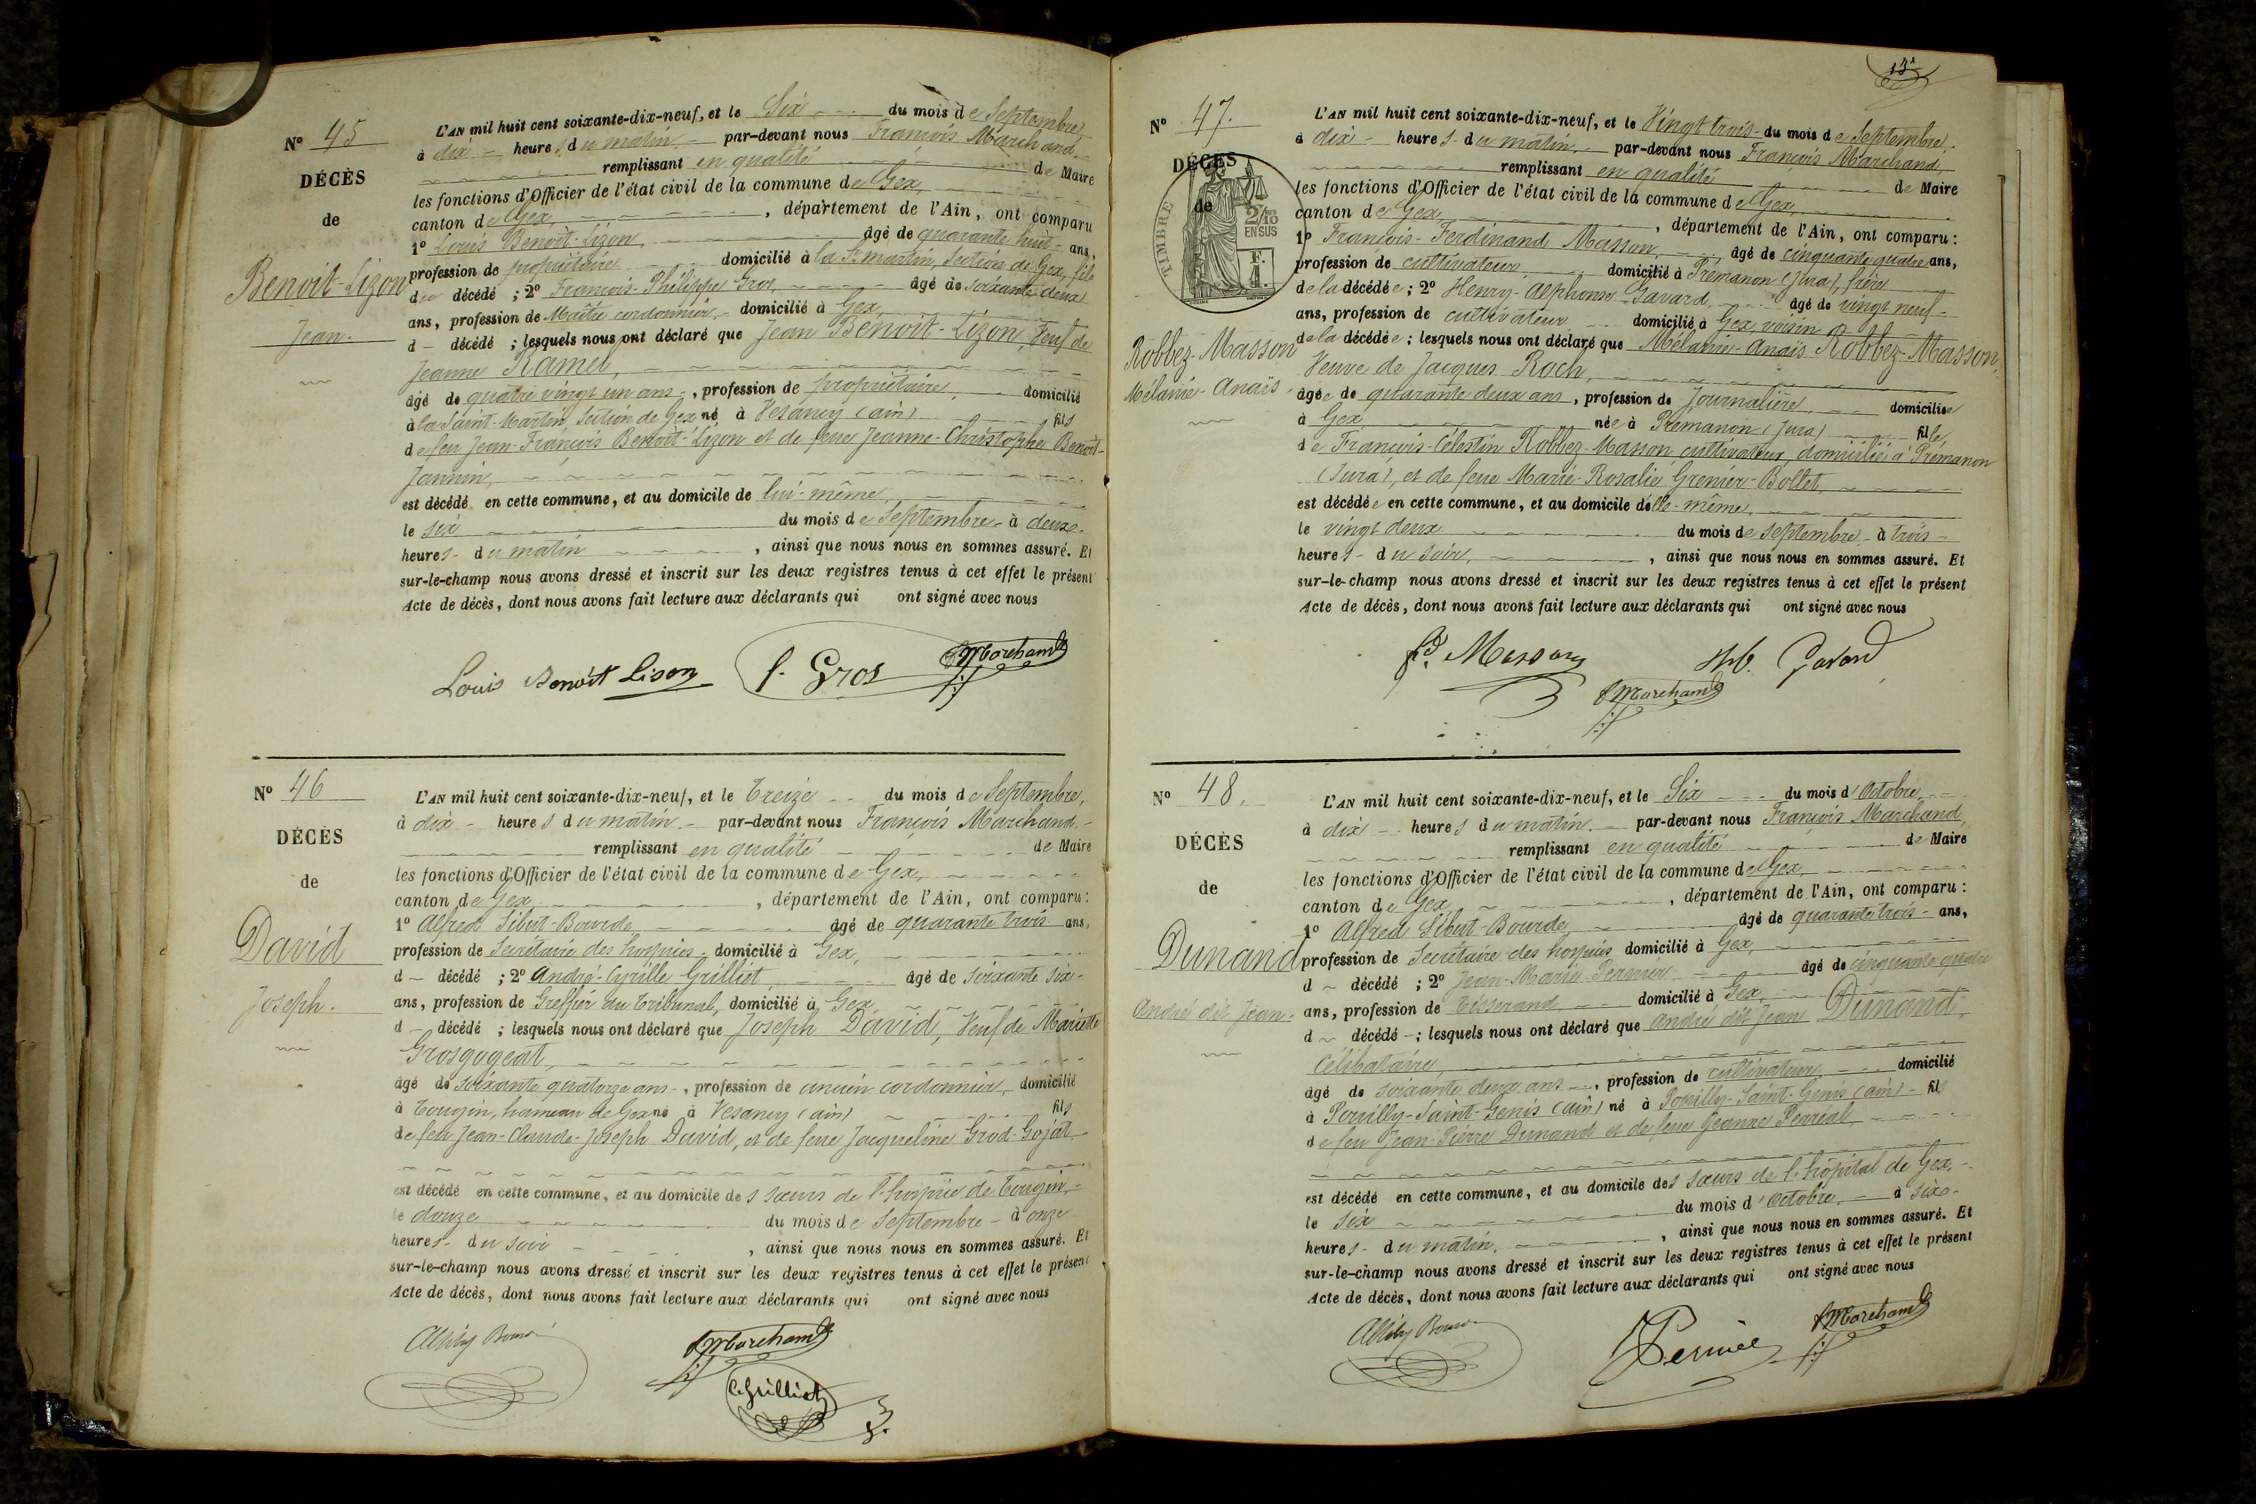 Nº 45
DÉCÈS
de
Benoit-Lizon
Jean.
L'AN mil huit cent soixante-dix-neuf, et le Six du mois de Septembre,
à dix heures du matin par-devant nous François Marchand
remplissant en qualité de Maire
les fonctions d'Officier de l'état civil de la commune de Gex,
canton de Gex, département de l'Ain, ont comparu
1º Louis Benoit-Lizon, âgé de quarante huit ans,
profession de propriétaire domicilié à la St martin, section de Gex, fils
du décédé ; 2º François-Philippe Gros, âgé de soixante deux
ans, profession de Maître cordonnier, domicilié à Gex,
d décédé ; lesquels nous ont déclaré que Jean Benoit-Lizon, Veuf de
Jeanne Ramel,
âgé de quatre vingt un ans, profession de propriétaire, domicilié
à la Saint-Martin, section de Gex né à Vesancy (ain) fils
de feu Jean-François Benoit-Lizon et de feue Jeanne-Christophe Benoit-
Jannin,
est décédé en cette commune, et au domicile de lui-même,
le six du mois de Septembre à deux
heures du matin, ainsi que nous nous en sommes assuré. Et
sur-le-champ nous avons dressé et inscrit sur les deux registres tenus à cet effet le présent
Acte de décès, dont nous avons fait lecture aux déclarants qui ont signé avec nous
Louis Benoit Lison f. Gros fMarchand
Nº 46
DÉCÈS
de
David
Joseph.
L'AN mil huit cent soixante-dix-neuf, et le Treize du mois de Septembre,
à dix heures du matin par-devant nous François Marchand
remplissant en qualité de Maire
les fonctions d'Officier de l'état civil de la commune de Gex,
canton de Gex, département de l'Ain, ont comparu :
1º Alfred Sibut-Bourde âgé de quarante trois ans,
profession de Secrétaire des hospices domicilié à Gex,
d décédé ; 2º André-Cyrille Grilliet âgé de soixante six
ans, profession de Greffier du Tribunal, domicilié à Gex
d décédé ; lesquels nous ont déclaré que Joseph David, Veuf de Mariette
Grosgogeat,
âgé de soixante quatorze ans, profession de ancien cordonnier, domicilié
à Tougin, hameau de Gex né à Vesancy (ain) fils
de feu Jean-Claude-Joseph David, et de feue Jacqueline Grod-Gojat
est décédé en cette commune, et au domicile des sœurs de l'hospice de Tougin,
le douze du mois de Septembre à onze
heures du soir, ainsi que nous nous en sommes assuré. Et
sur-le-champ nous avons dressé et inscrit sur les deux registres tenus à cet effet le présent
Acte de décès, dont nous avons fait lecture aux déclarants qui ont signé avec nous
fMarchand
C. Grilliet
Nº 47.
DÉCÈS
de
TIMBRE
2/10
EN SUS
Robbez-Masson
Mélanie-Anaïs.
L'AN mil huit cent soixante-dix-neuf, et le Vingt trois du mois de Septembre,
à dix heures du matin, par-devant nous François Marchand,
remplissant en qualité de Maire
les fonctions d'Officier de l'état civil de la commune de Gex,
canton de Gex, département de l'Ain, ont comparu :
1º François-Ferdinand Masson, âgé de cinquante quatre ans,
profession de cultivateur, domicilié à Prémanon (Jura), frère
de la décédée ; 2º Henry-Alphonse Gavard âgé de vingt neuf
ans, profession de cultivateur domicilié à Gex, voisin
de la décédée ; lesquels nous ont déclaré que Mélanie-Anaïs Robbez-Masson,
Veuve de Jacques Rach,
âgée de quarante deux ans, profession de Journalière domiciliée
à Gex, née à Prémanon (Jura) fille
de François-Célestin Robbez-Masson cultivateur, domicilié à Prémanon
(Jura), et de feue Marie-Rosalie Grenier-Bollet,
est décédée en cette commune, et au domicile d'elle-même,
le vingt deux du mois de septembre à trois
heures du soir, ainsi que nous nous en sommes assuré. Et
sur-le-champ nous avons dressé et inscrit sur les deux registres tenus à cet effet le présent
Acte de décès, dont nous avons fait lecture aux déclarants qui ont signé avec nous
fd. Masson Gavard
fMarchand
Nº 48.
DÉCÈS
de
Dunand
André dit Jean.
L'AN mil huit cent soixante-dix-neuf, et le Six du mois d'Octobre,
à dix heures du matin. par-devant nous François Marchand,
remplissant en qualité de Maire
les fonctions d'Officier de l'état civil de la commune de Gex,
canton de Gex, département de l'Ain, ont comparu :
1º Alfred Sibut-Bourde, âgé de quarante trois ans,
profession de Secrétaire des hospices domicilié à Gex,
d décédé ; 2º Jean-Marie Pernier âgé de cinquante quatre
ans, profession de Tisserand domicilié à Gex,
d décédé ; lesquels nous ont déclaré que André dit Jean Dunand,
célibataire,
âgé de soixante deux ans, profession de cultivateur, domicilié
à Pouilly-Saint-Genis (ain) né à Pouilly-Saint-Genis (ain) fils
de feu Jean-Pierre Dunand et de feue Jeanne Perréal,
est décédé en cette commune, et au domicile des sœurs de l'hôpital de Gex,
le six du mois d'Octobre, à six
heures du matin, ainsi que nous nous en sommes assuré. Et
sur-le-champ nous avons dressé et inscrit sur les deux registres tenus à cet effet le présent
Acte de décès, dont nous avons fait lecture aux déclarants qui ont signé avec nous
Pernier fMarchand